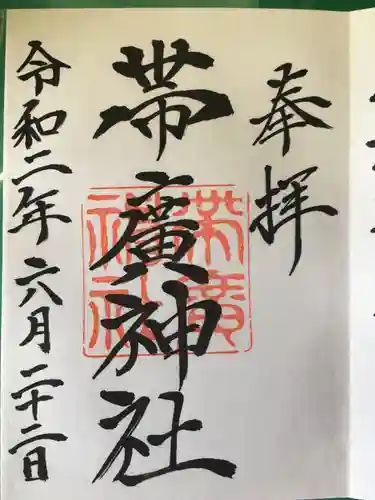 奉拝
帯廣神社
帯廣神社
令和二年六八月二十二日